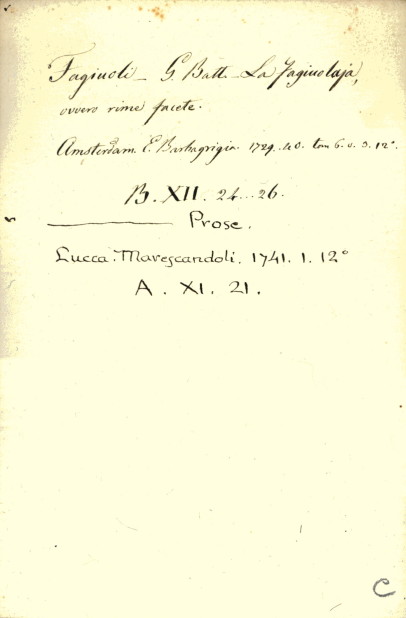 Fagiuoli - G. Batt. - La Fagiuolaja,
ovvero rime facete.
Amsterdam. E. Barbagrigia. 1729.-40. tom 6. v. 3. 12°.
B. XII. 24...26.
Prose.
Lucca. Marescandoli. 1741. 1. 12°
A. XI. 21.
C